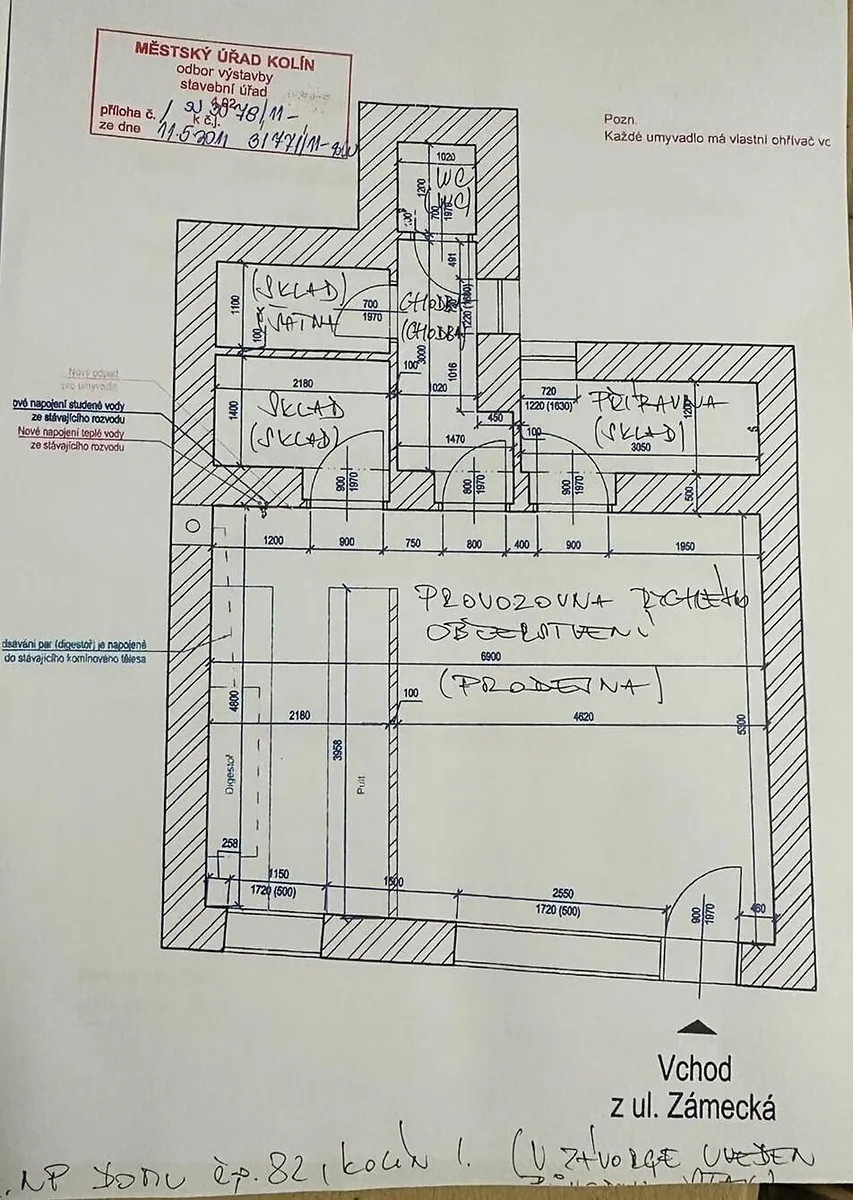 MĚSTSKÝ ÚŘAD KOLÍN
odbor výstavby
stavební úřad
příloha č. / k č.j.
ze dne 11.5.2011
Pozn.
Každé umyvadlo má vlastní ohřívač vc
1020
WC
(WC)
1200
700
1976
100
491
(SKLAD)
ŠATNA
1100
100
700
1970
CHODBA
(CHODBA)
1220 (1630)
3000
1016
100
1020
2180
SKLAD
(SKLAD)
1400
450
1470
720
1220 (1630)
PŘÍPRAVNA
(SKLAD)
1200
100
3050
500
Nový odpad
pro umyvadlo
ové napojení studené vody
ze stávajícího rozvodu
Nové napojení teplé vody
ze stávajícího rozvodu
900
1970
800
1970
900
1970
1200
900
750
800
400
900
1950
PROVOZOVNA RYCHLÉHO
OBČERSTVENÍ
6900
(PRODEJNA)
dsávání par (digestoř) je napojené
do stávajícího komínového tělesa
4800
2180
100
4620
5300
3958
Digestoř
Pult
258
1150
1720 (500)
1500
2550
1720 (500)
900
1970
460
Vchod
z ul. Zámecká
NP DOMU čp. 82, KOLÍN I. (V ZÁVORCE UVEDEN